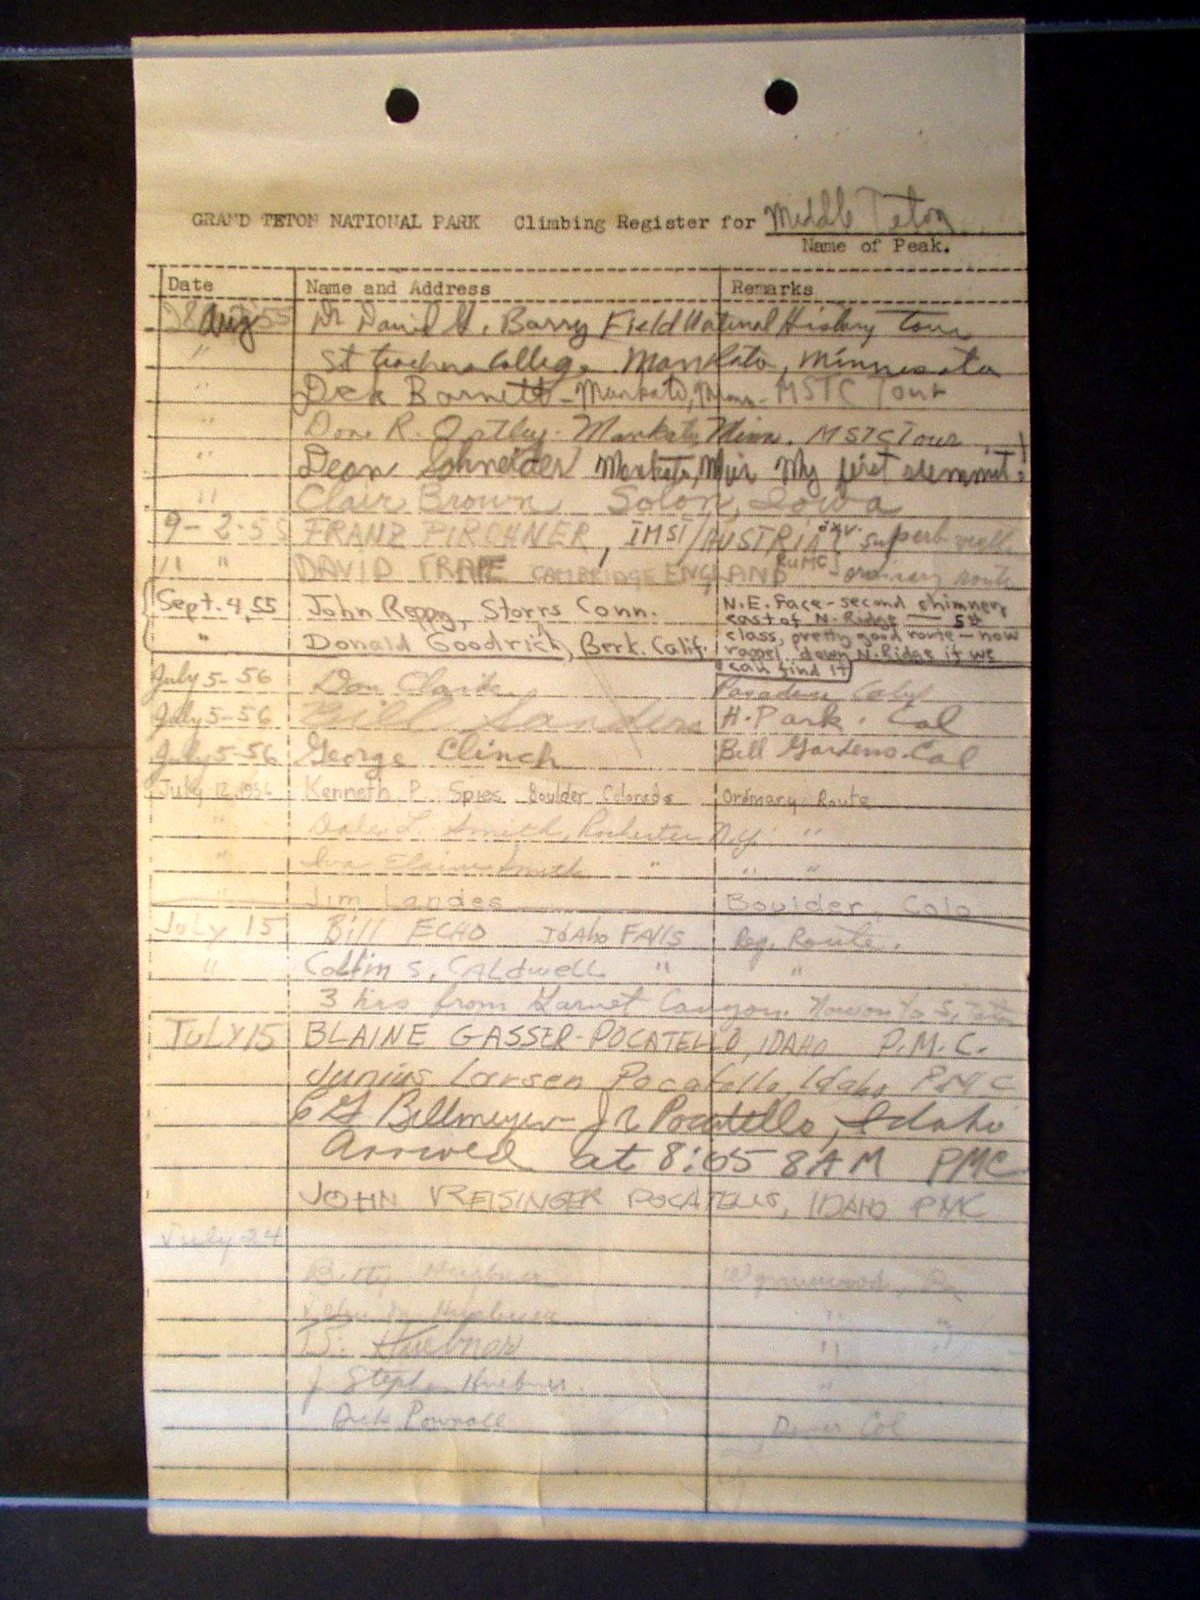 GRAND TETON NATIONAL PARK Climbing Register for Middle Teton
Name of Peak.
Date Name and Address Remarks
28 Aug 55 Dr David H. Barry Field Natural History Tour
" St Teachers College. Mankato, Minnesota
" Dick Barnett - Mankato, Minn. - MSTC Tour
" Don R. Mankato, Minn. MSTC Tour
" Dean Schneider Mankato, Minn My first summit!
" Clair Brown Solon, Iowa
9-2-55 FRANZ PIRCHNER, IMST/AUSTRIA superb
" " DAVID CAMBRIDGE ENGLAND CUMC - ordinary route
Sept. 4, 55 John Reppy, Storrs Conn. N.E. Face - second chimney
east of N. Ridge — 5th
" Donald Goodrich, Berk. Calif. class, pretty good route - now
rappel down N. Ridge if we
can find it
July 5-56 Don Clark Pasadena Calif
July 5-56 Bill Sanders H. Park. Cal
July 5-56 George Clinch Bell Gardens. Cal
July 12, 1956 Kenneth P. Spies Boulder Colorado Ordinary Route
" Dale L. Smith, Rochester N.Y. "
" Iva Elaine Smith " " "
" Jim Landes Boulder, Colo
July 15 Bill ECHO IdAho FAllS Reg. Route.
" Collin S. CALdwELL " "
3 hrs from Garnet Canyon. Now on to S. Teton
JULY 15 BLAINE GASSER - POCATELLO, IDAHO P.M.C.
Junius Larsen Pocatello, Idaho PMC
C G Billmeyer Jr Pocatello, Idaho
Arrived at 8:05 8 AM PMC
JOHN VREISINGER POCATELLO, IDAHO PMC
July 24
Betty Huebner Wynnewood, Pa
Huebner " "
Huebner " "
J Stephen Huebner "
Dick Pownall Denver Col